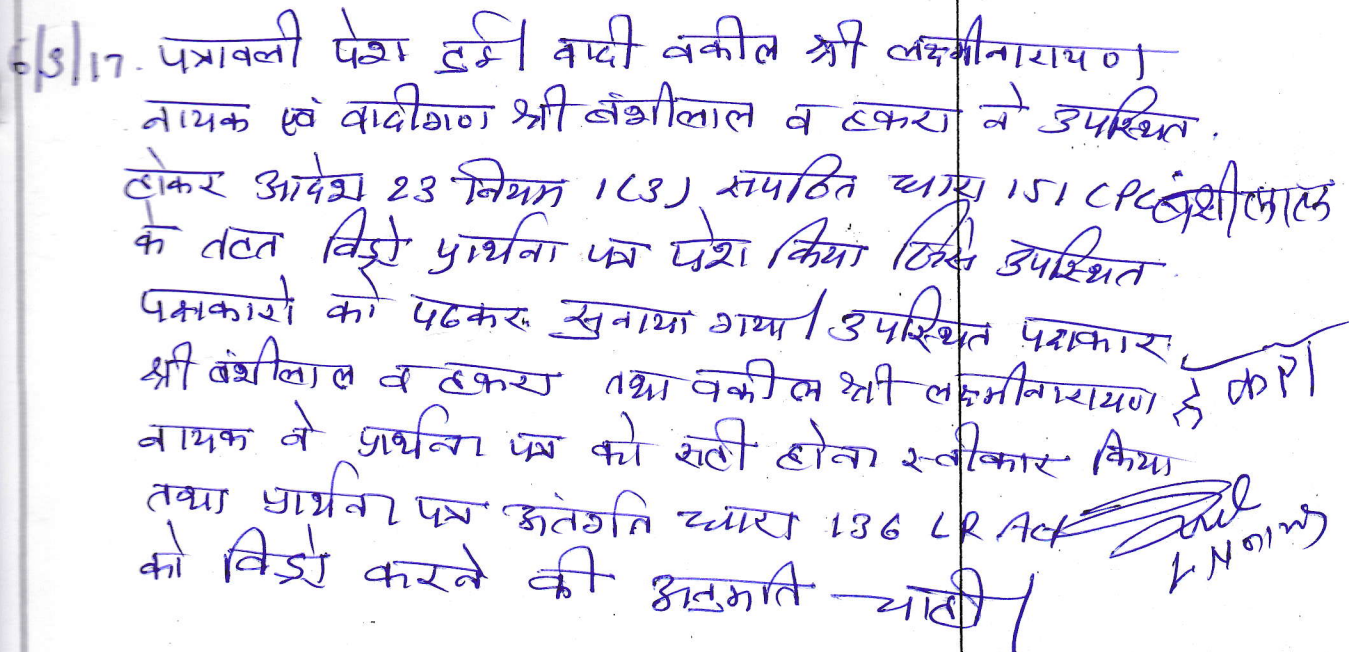 6/3/17. पत्रावली पेश हुई। वादी वकील श्री लक्ष्मीनारायण
नायक एवं वादीगण श्री बंशीलाल व हकरा ने उपस्थित
होकर आदेश 23 नियम 1(3) सपठित धारा 151 CPC
बंशीलाल
के तहत विड्रो प्रार्थना पत्र पेश किया जिसे उपस्थित
पक्षकारो को पढकर सुनाया गया। उपस्थित पक्षकार
श्री बंशीलाल व हकरा तथा वकील श्री लक्ष्मीनारायण
हकरा
नायक ने प्रार्थना पत्र को सही होना स्वीकार किया
तथा प्रार्थना पत्र अंतर्गत धारा 136 LR Act
को विड्रो करने की अनुमति चाही।